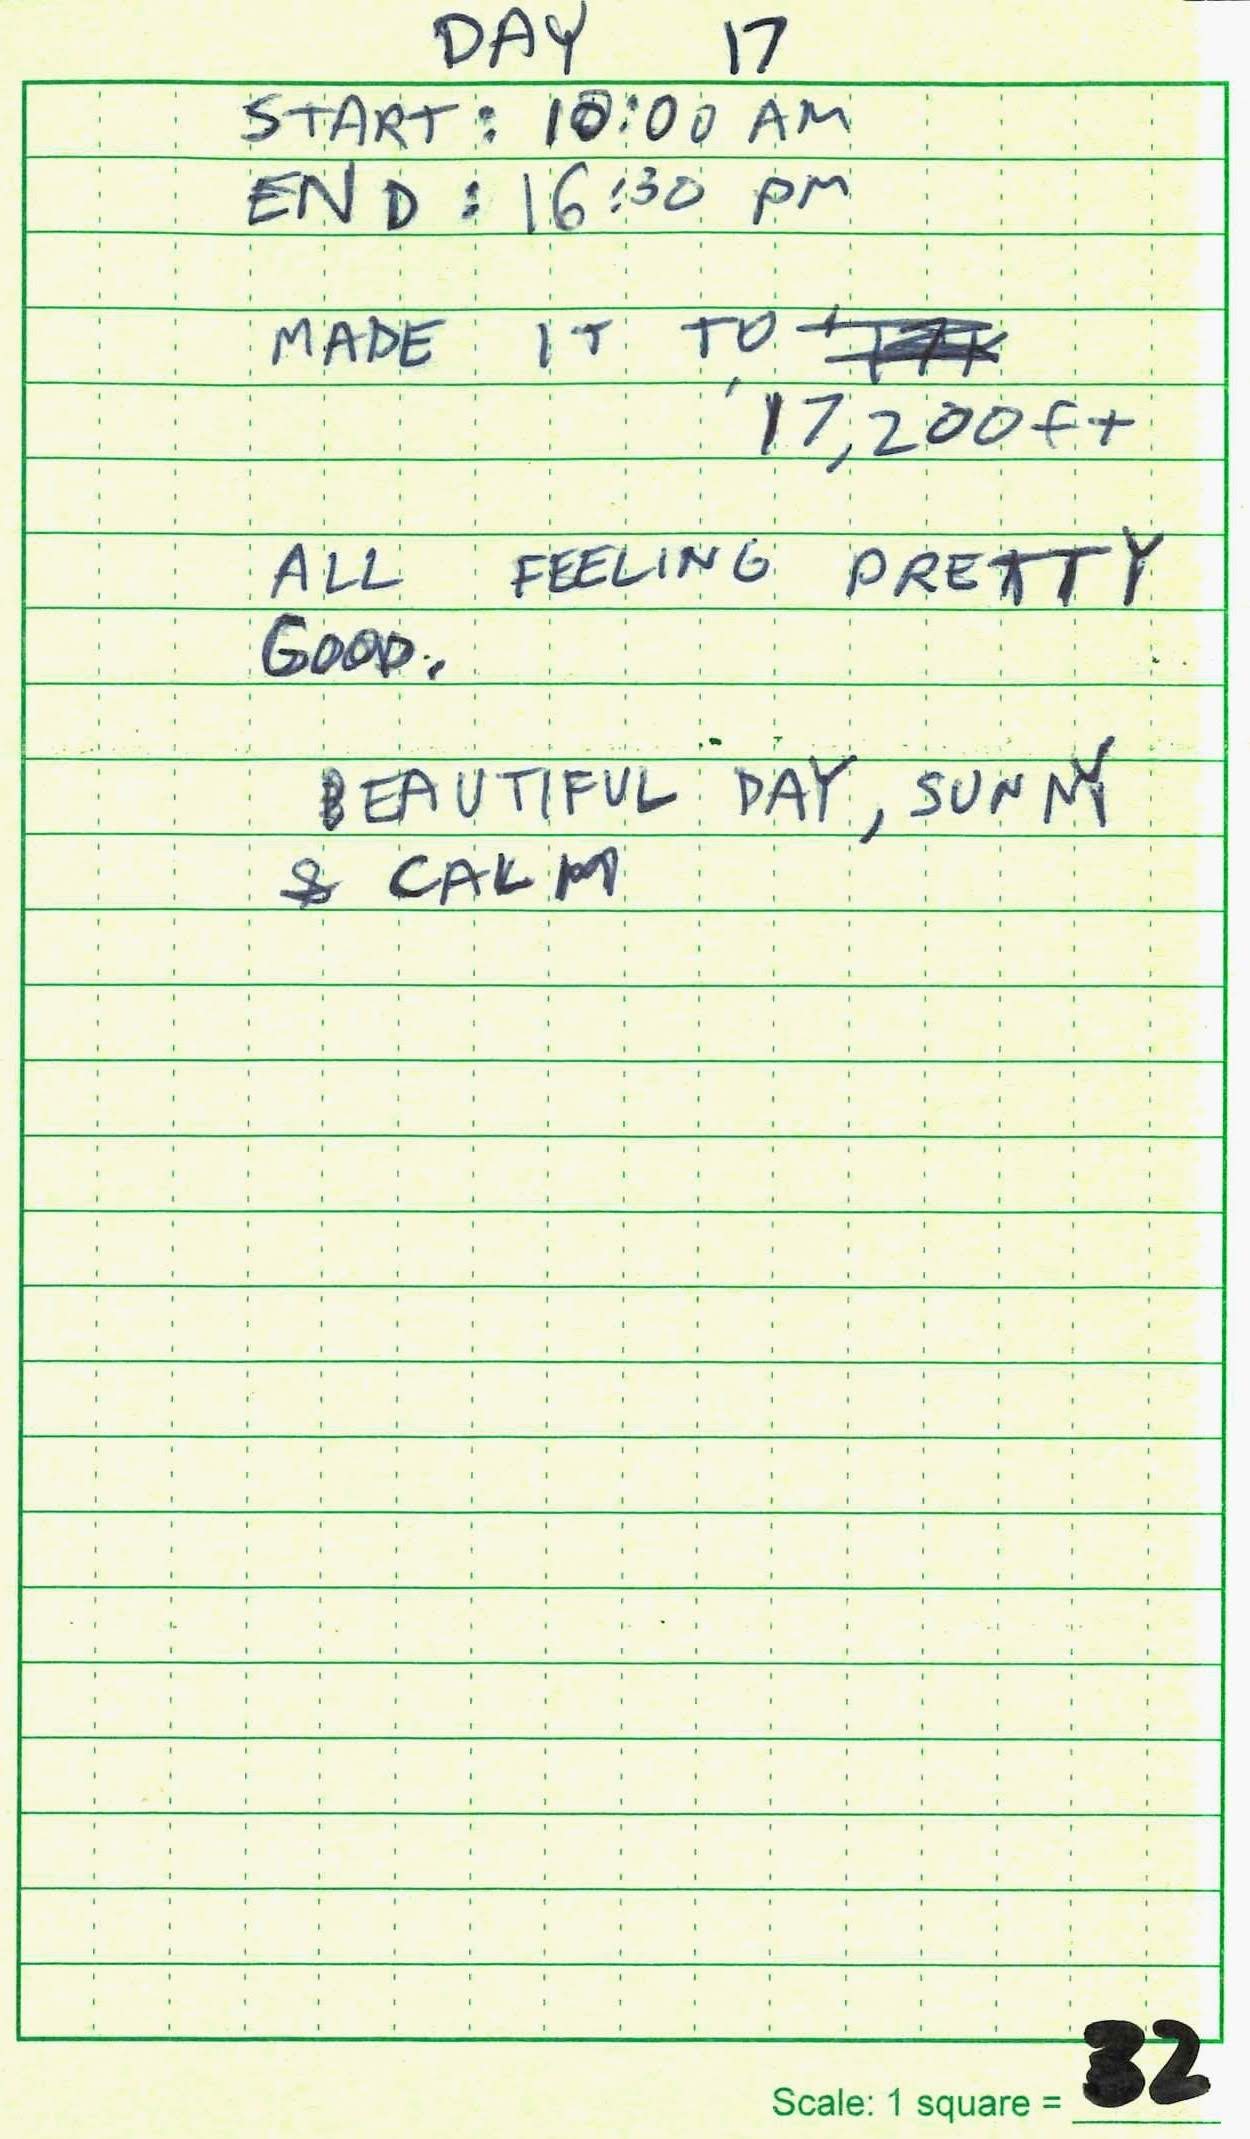 DAY 17
START: 10:00 AM
END: 16:30 PM
MADE IT TO
17,200ft
ALL FEELING PRETTY
GOOD.
BEAUTIFUL DAY, SUNNY
& CALM
Scale: 1 square = 32